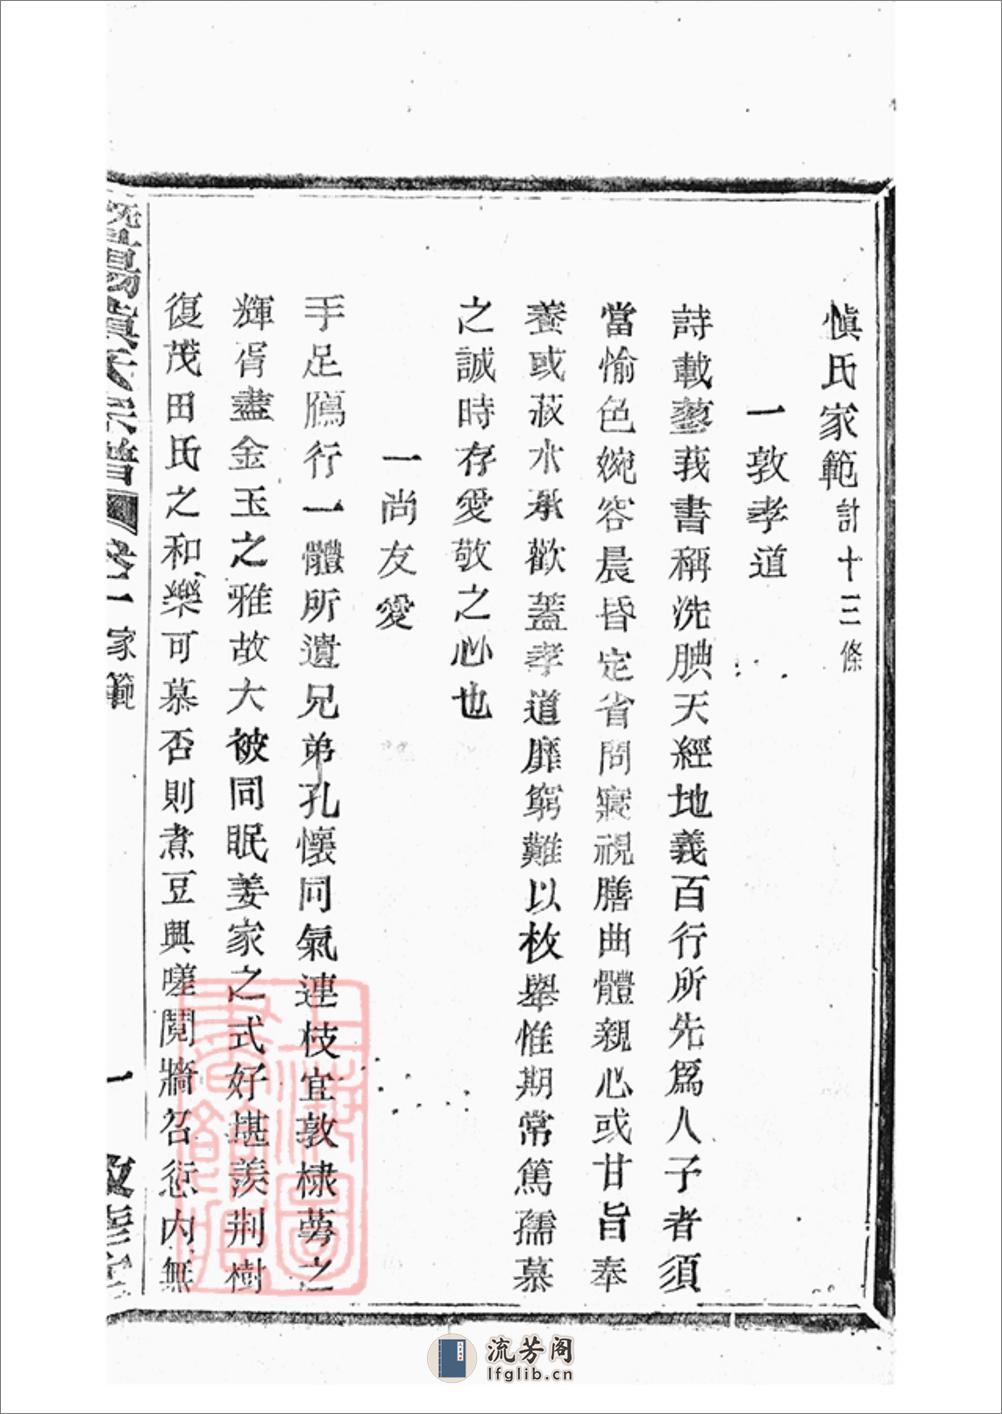 慎氏家範計十三條
一敦孝道
詩載蓼莪書稱洗腆天經地義百行所先為人子者須
當愉色婉容晨昏定省問寢視膳曲體親心或甘旨奉
養或菽水承歡蓋孝道靡窮難以枚舉惟期常篤孺慕
之誠時存愛敬之心也
一尚友愛
手足鴈行一體所遺兄弟孔懷同氣連枝宜敦棣萼之
輝胥盡金玉之雅故大被同眠姜家之式好堪羨荆樹
復茂田氏之和樂可慕否則煮豆興嗟鬩牆召愆內無
暨陽慎氏宗譜 卷一 家範 一 敦睦堂
上海圖書館藏
流芳阁
lfglib.cn